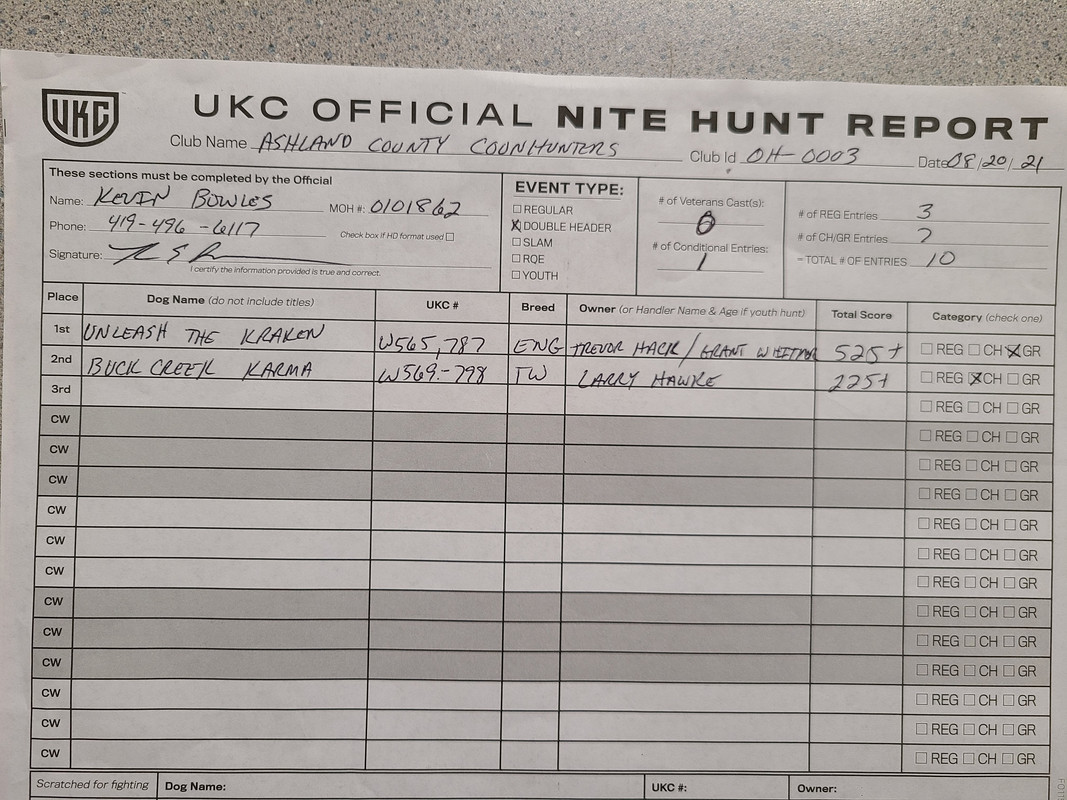 UKC
UKC OFFICIAL NITE HUNT REPORT
Club Name ASHLAND COUNTY COONHUNTERS Club Id OH-0003 Date 08/20/21
These sections must be completed by the Official
Name: KEVIN BOWLES MOH #: 0101862
Phone: 419-496-6117 Check box if HD format used ☐
Signature:
I certify the information provided is true and correct.
EVENT TYPE:
☐ REGULAR
☒ DOUBLE HEADER
☐ SLAM
☐ RQE
☐ YOUTH
# of Veterans Cast(s):
0
# of Conditional Entries:
1
# of REG Entries 3
# of CH/GR Entries 7
= TOTAL # OF ENTRIES 10
Place Dog Name (do not include titles) UKC # Breed Owner (or Handler Name & Age if youth hunt) Total Score Category (check one)
1st UNLEASH THE KRAKEN W565,787 ENG TREVOR HACK / GRANT WHITMR 525+ ☐ REG ☐ CH ☒ GR
2nd BUCK CREEK KARMA W569-798 TW LARRY HAWKE 225+ ☐ REG ☒ CH ☐ GR
3rd ☐ REG ☐ CH ☐ GR
CW ☐ REG ☐ CH ☐ GR
CW ☐ REG ☐ CH ☐ GR
CW ☐ REG ☐ CH ☐ GR
CW ☐ REG ☐ CH ☐ GR
CW ☐ REG ☐ CH ☐ GR
CW ☐ REG ☐ CH ☐ GR
CW ☐ REG ☐ CH ☐ GR
CW ☐ REG ☐ CH ☐ GR
CW ☐ REG ☐ CH ☐ GR
CW ☐ REG ☐ CH ☐ GR
CW ☐ REG ☐ CH ☐ GR
CW ☐ REG ☐ CH ☐ GR
Scratched for fighting Dog Name: UKC #: Owner: